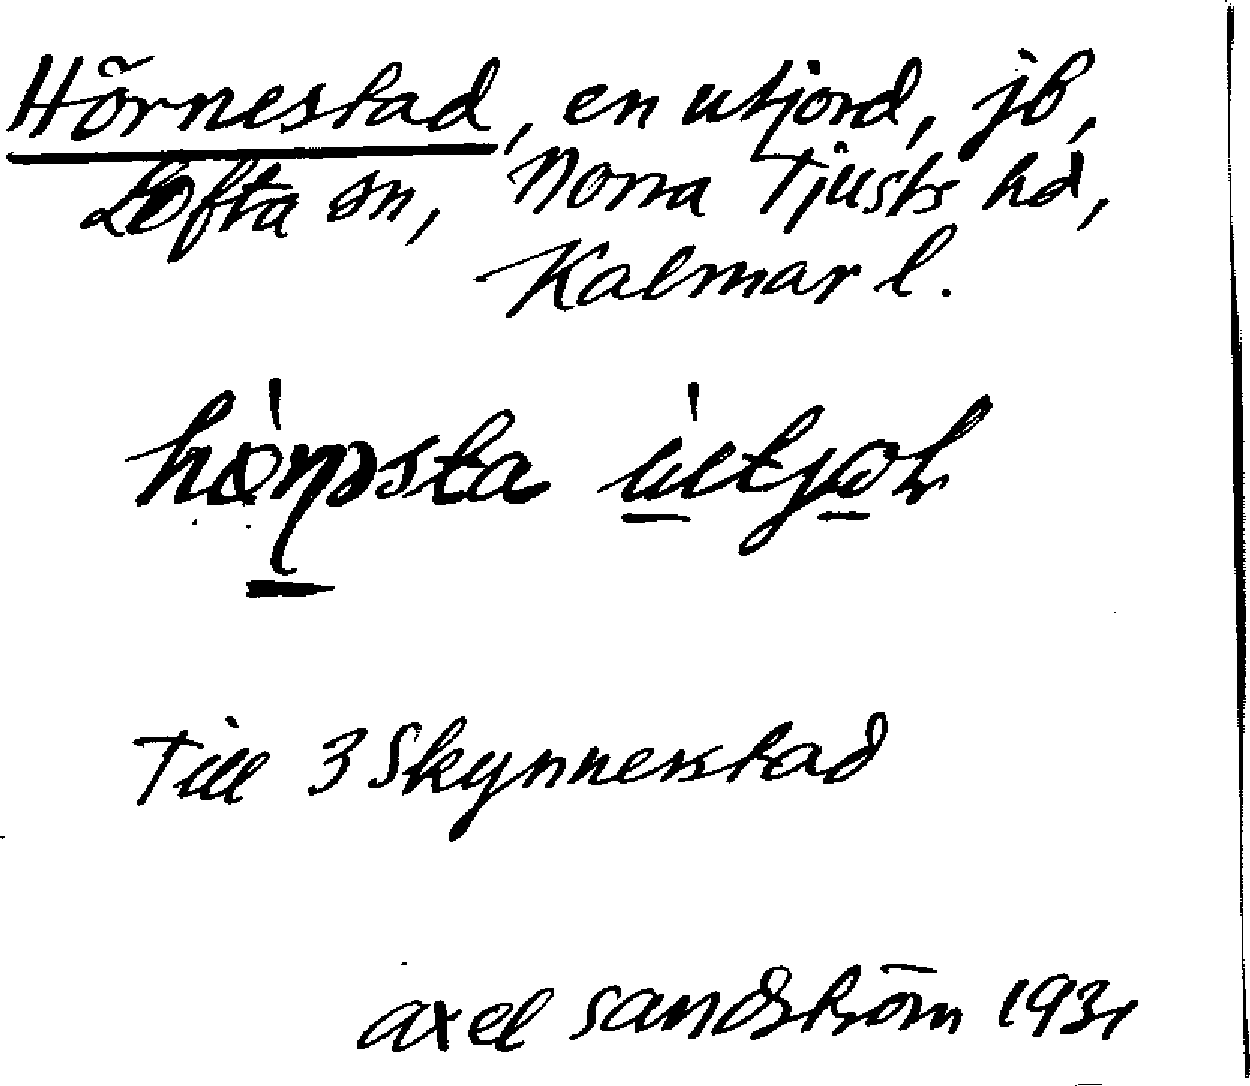 Hörnestad, en utjord, jb,
Lofta sn, Norra Tjusts hd,
Kalmar l.
Till 3 Skynnerstad
Axel Sandström 1931